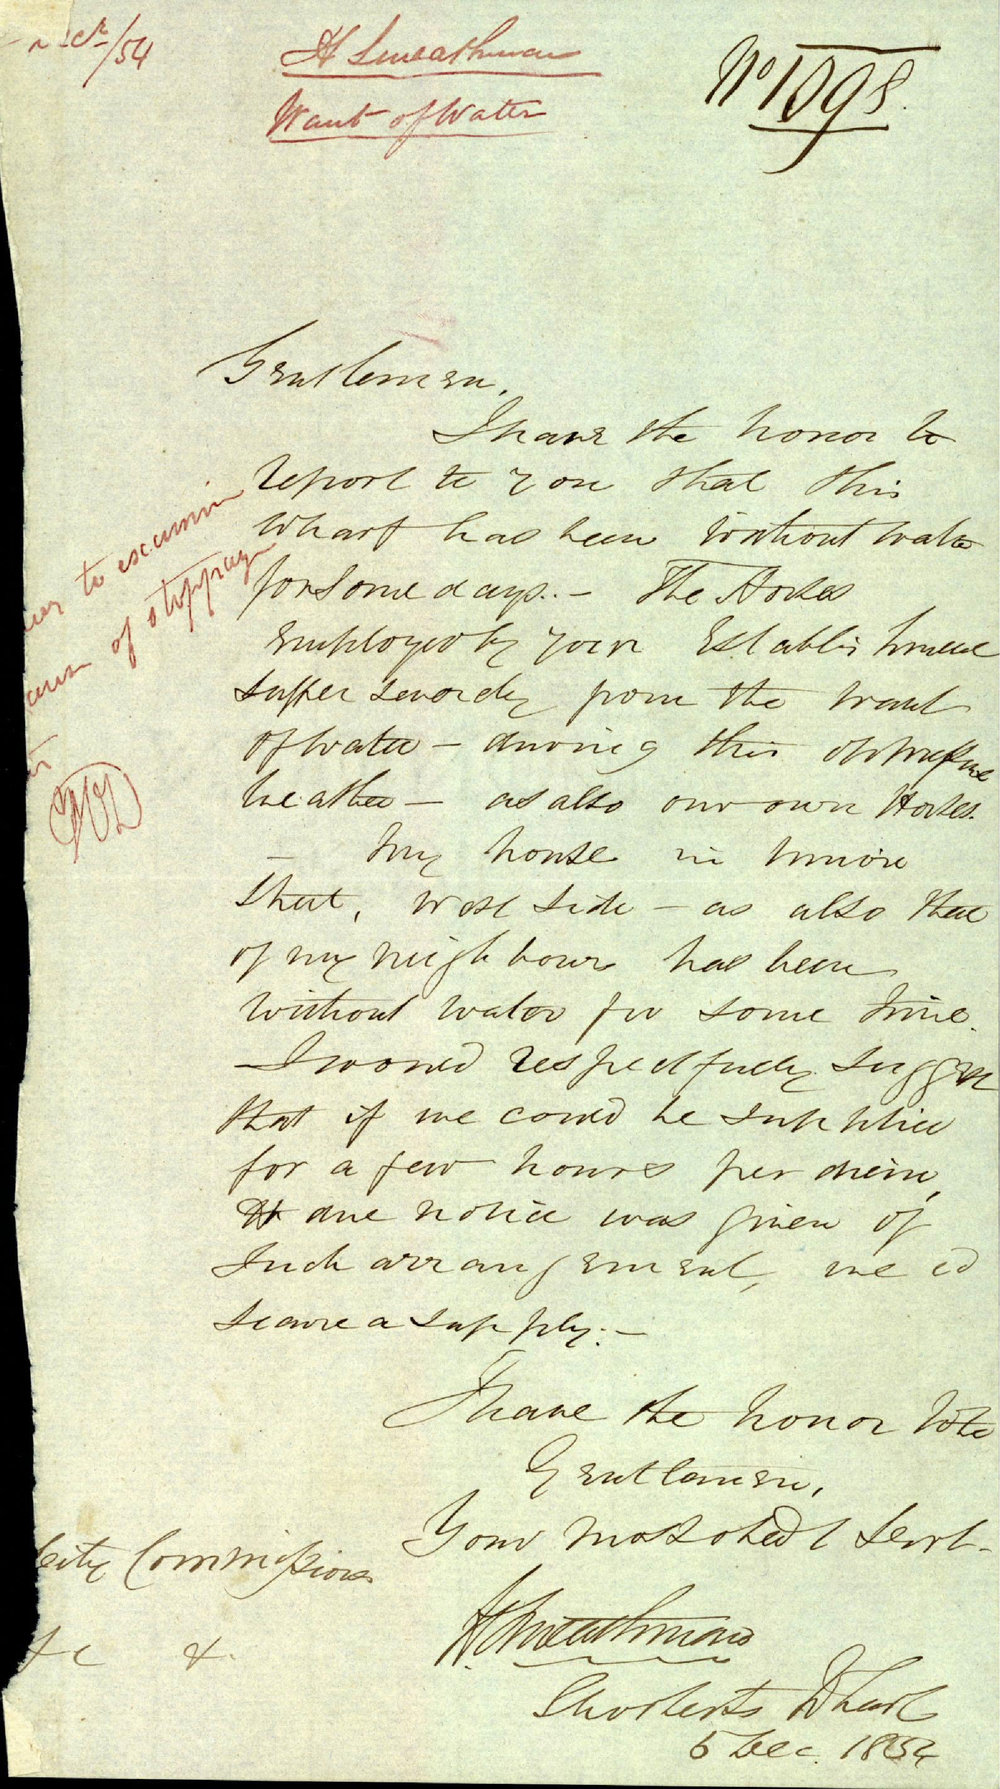 /54
Want of Water
No 1898.
Gentlemen,
I have the honor to
report to you that this
Wharf has been without water
for some days. - The Horses
employed by your Establishment
suffer severely from the want
of water - during this oppressive
weather - as also our own Horses.
- My house in
Street, West side - as also that
of my neighbours has been
without water for some time.
- I would respectfully suggest
that if we could be supplied
for a few hours per diem,
& due notice was given of
such arrangement, we cd
secure a supply. -
I have the honor to be
Gentlemen,
Your most obedt Servt.
Wharf
5 Dec. 1854
to examine
of stoppage
City Commissioners
&c &.